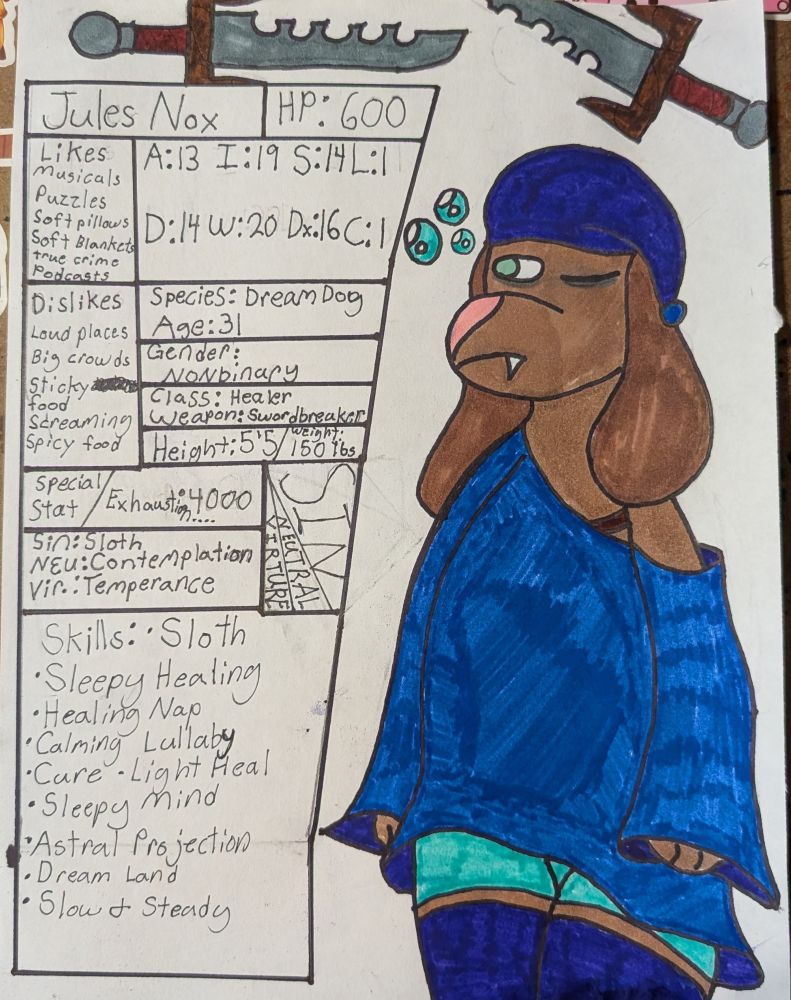 Jules Nox
HP: 600
Likes
Musicals
Puzzles
Soft pillows
Soft Blankets
true crime
Podcasts
A:13 I:19 S:14 L:1
D:14 W:20 Dx:16 C:1
Dislikes
Loud places
Big crowds
Sticky
food
Screaming
Spicy food
Species: Dream Dog
Age: 31
Gender:
Nonbinary
Class: Healer
Weapon: Swordbreaker
Height: 5'5 / Weight: 150 lbs
Special
Stat / Exhaustion:4000
SIN
NEUTRAL
VIRTURE
Sin: Sloth
NEU: Contemplation
Vir.: Temperance
Skills: · Sloth
· Sleepy Healing
· Healing Nap
· Calming Lullaby
· Cure · Light Heal
· Sleepy Mind
· Astral Projection
· Dream Land
· Slow & Steady